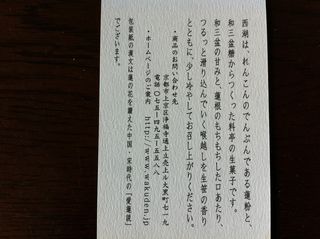 西湖は、れんこんのでんぷんである蓮粉と、
和三盆糖からつくった料亭の生菓子です。
和三盆の甘みと、蓮根のもちもちした口あたり、
つるっと滑り込んでいく喉越しを生笹の香り
とともに、少し冷やしてお召し上がりください。
・商品のお問い合わせ先
京都市上京区浄福寺通上立売上ル大黒町七一九
電話〇七五-四九五-五五八八
・ホームページのご案内 http://www.wakuden.jp
包装紙の漢文は蓮の花を讃えた中国 宋時代の「愛蓮説」
でございます。